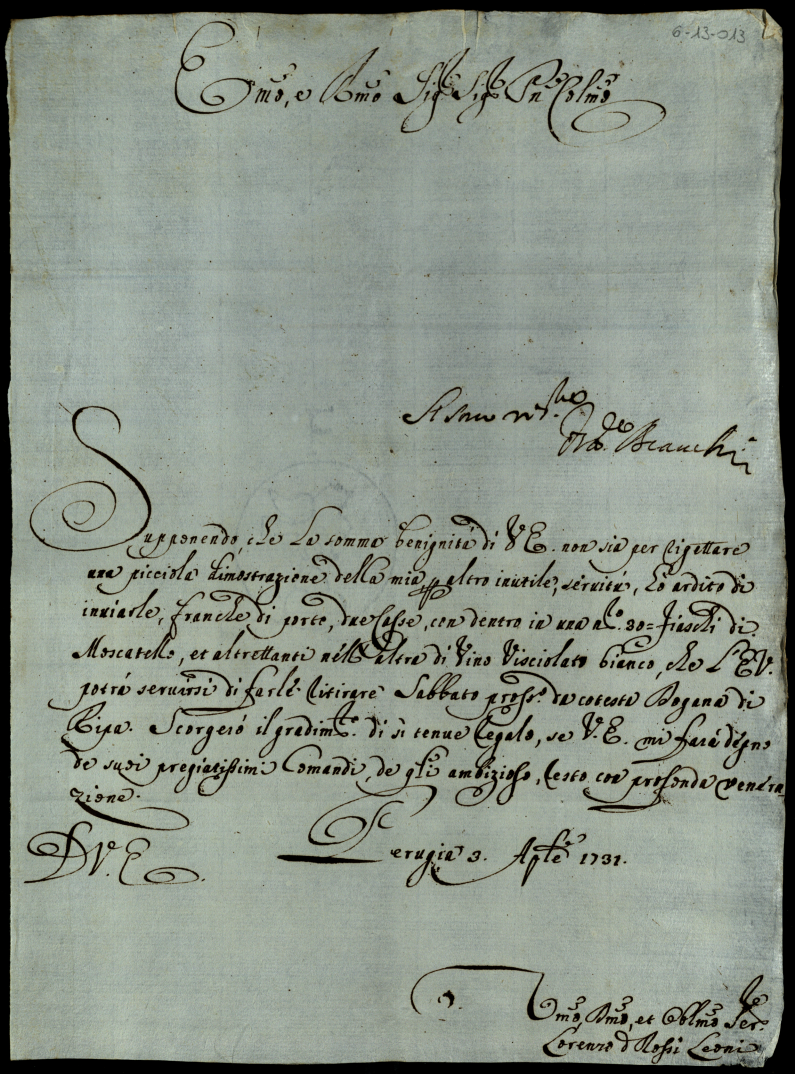 6-13-013
Emo, e Rmo Sigr Sigr Pne Colmo
Bianchi
Supponendo, che la somma benignità di V.E. non sia per rigettare
una picciola dimostrazione della mia p altro inutile, servitù, hò ardito di
inviarle, franche di porto, due Casse, con dentro in una no. 30= Fiaschi di
Moscatello, et altrettanti nell'altra di Vino Visciolato bianco, che l'E.V.
potrà servirsi di farle ritirare Sabbato pross.o da cotesta Dogana di
Ripa. Scorgerò il gradim.to di sì tenue regalo, se V.E. mi farà degno
de suoi pregiatissimi Comandi, de gli ambizioso, resto con profonda venera-
zione.
D V. E. Perugia 3. Aple 1731.
Umo, Dmo, et Oblmo Ser.re
Lorenzo d Rossi Leoni